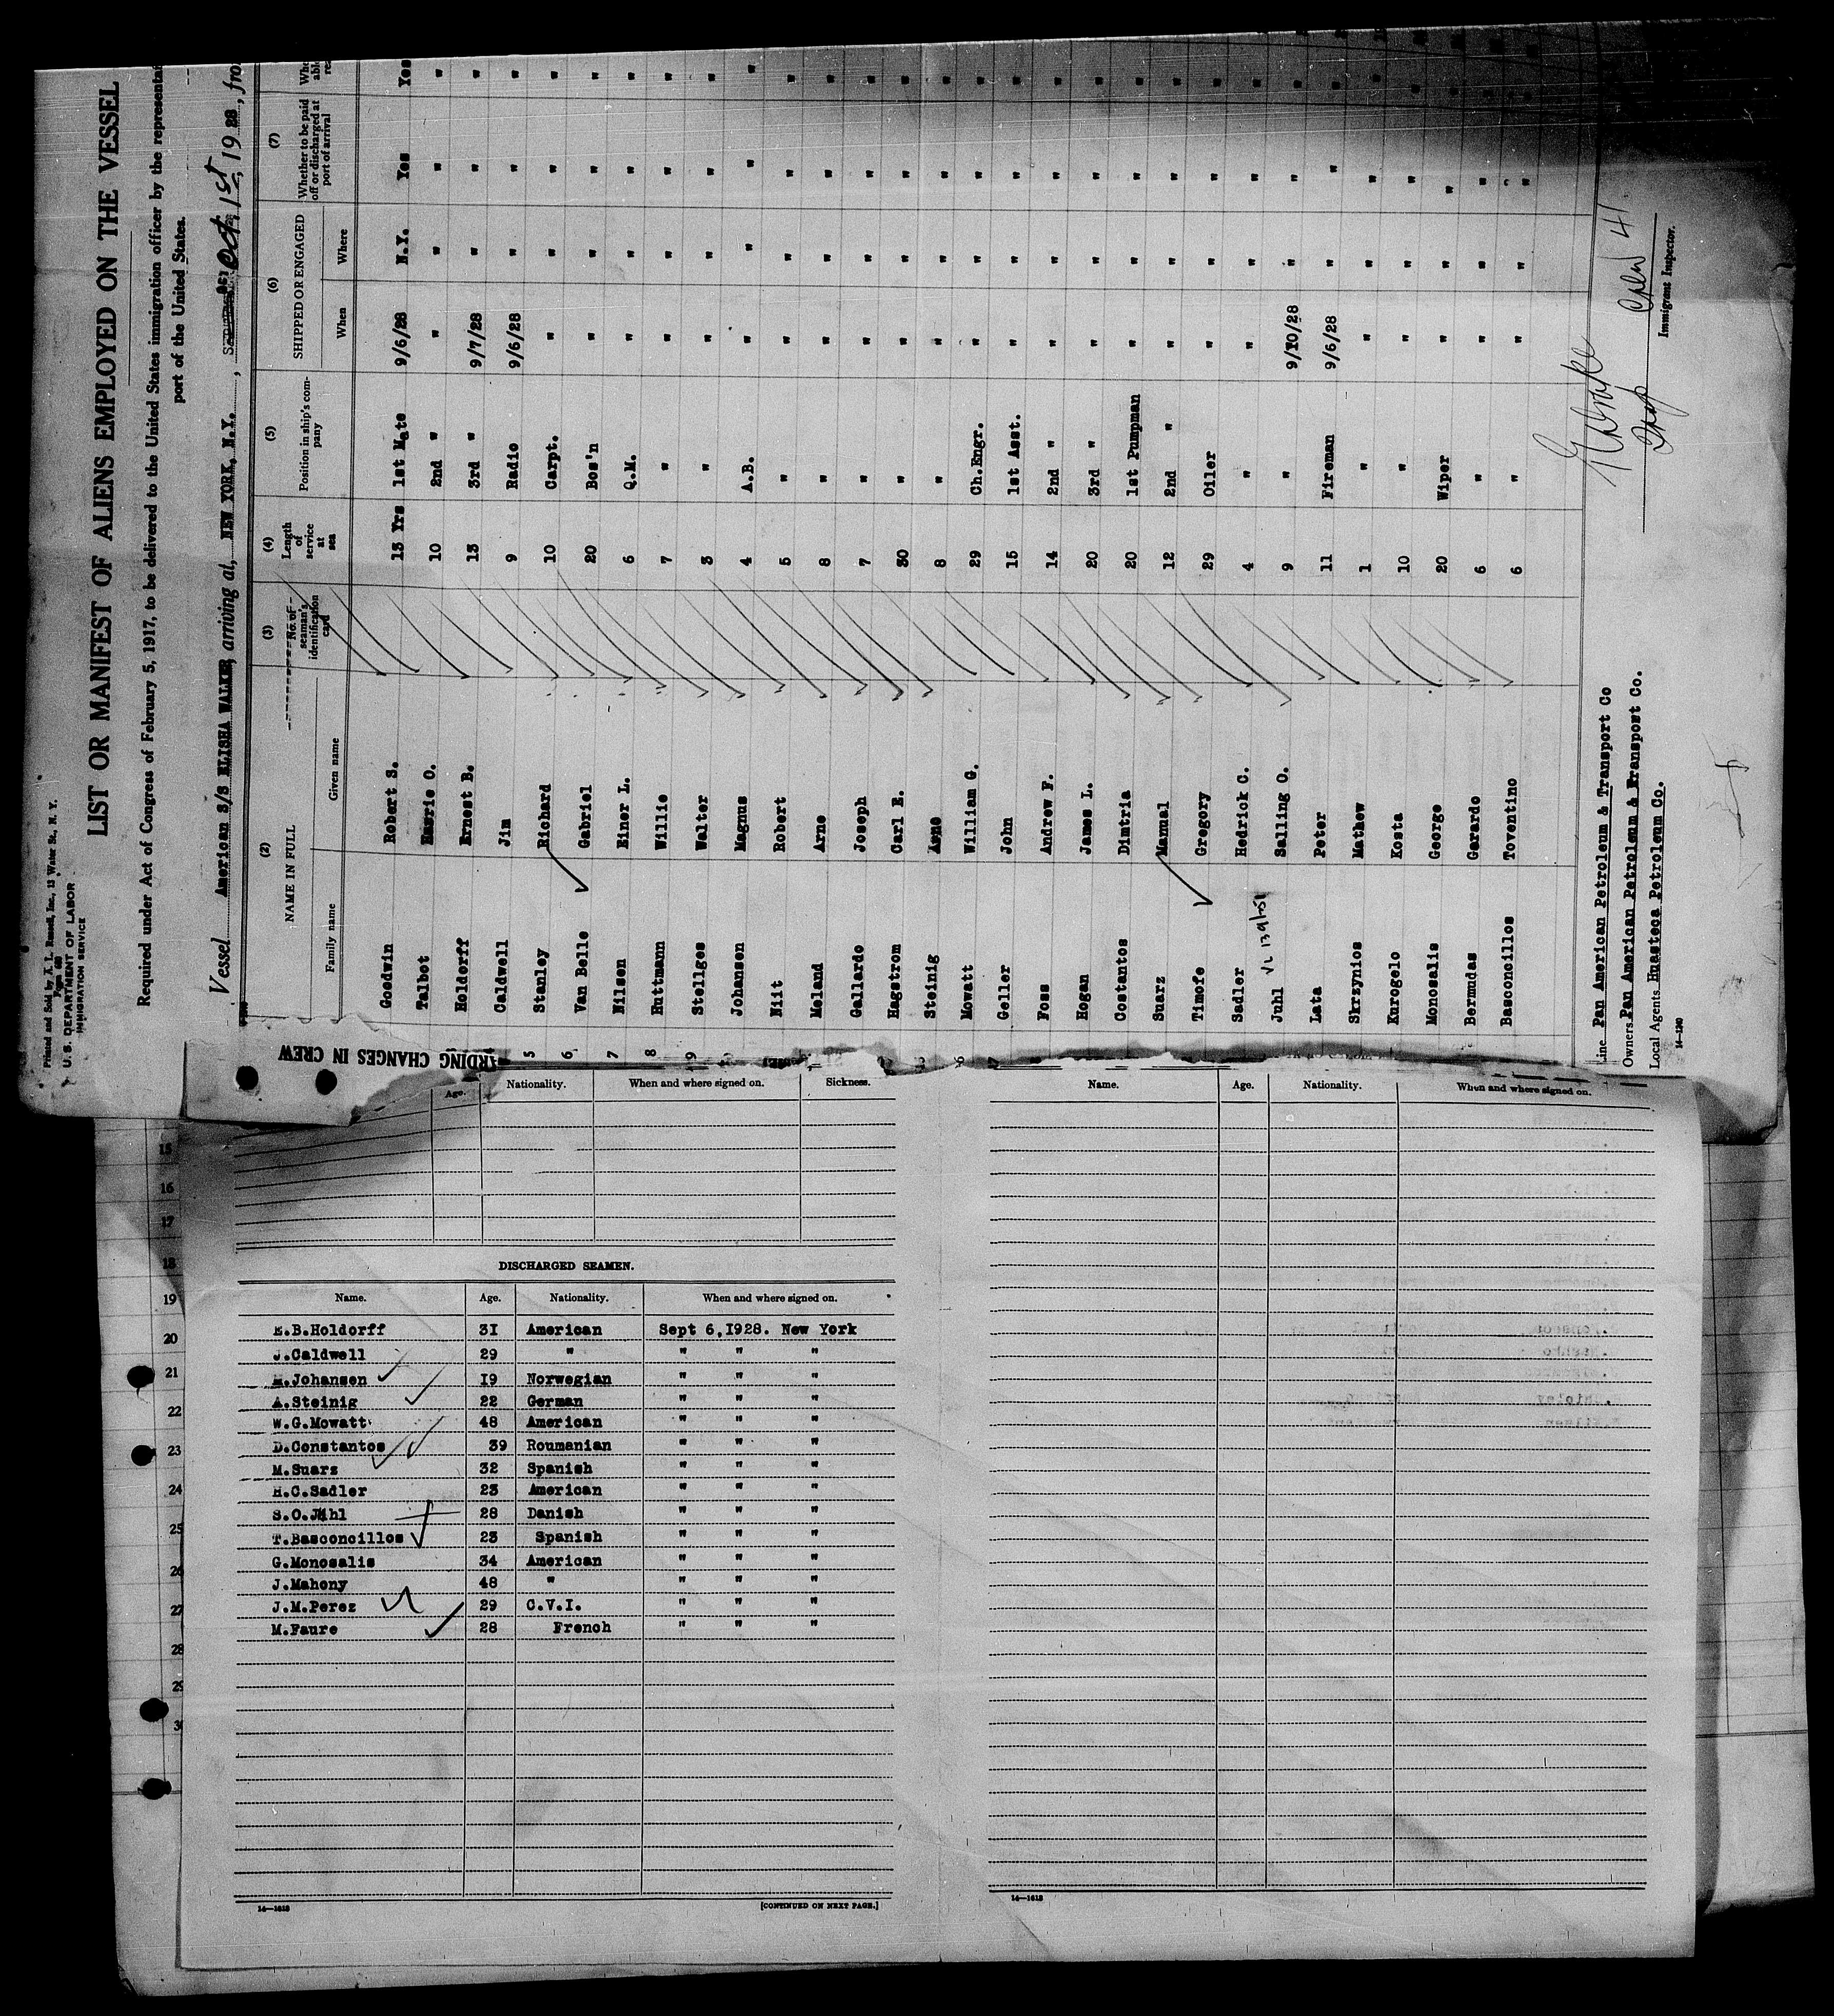 Printed and Sold by A. L. Russell, Inc., 13 Water St., N. Y.
U. S. DEPARTMENT OF LABOR
IMMIGRATION SERVICE
LIST OR MANIFEST OF ALIENS EMPLOYED ON THE VESSEL
Required under Act of Congress of February 5, 1917, to be delivered to the United States immigration officer by the
port of the United States.
Vessel American S/S ELISHA WALKER, arriving at, NEW YORK, N.Y., Oct. 1st, 19 28,
(2) (3) (4) (5) (6) (7)
NAME IN FULL No. of seaman's identification card Length of service at sea Position in ship's company SHIPPED OR ENGAGED Whether to be paid off or discharged at port of arrival
Family name Given name When Where
Goodwin Robert S. 13 Yrs. 1st Mate 9/6/28 N.Y. Yes Yes
Talbot O. 10 2nd " " " " "
Holdorff Ernest B. 13 3rd " 9/7/28 " " "
Caldwell Jim 9 Radio 9/6/28 " " "
Stanley Richard 10 Carpt. " " " "
Van Belle Gabriel 20 Bos'n " " " "
Nilsen Einer L. 6 Q.M. " " " "
Huttmann Willie 7 " " " " "
Stellges Walter 3 " " " " "
Johansen Magnus 4 A.B. " " " "
Niit Robert 5 " " " " "
Meland Arne 8 " " " " "
Gallardo Joseph 7 " " " " "
Hagstrom Carl E. 30 " " " " "
Steinig 8 " " " " "
Mowatt William G. 29 Ch.Engr. " " " "
Geller John 15 1st Asst. " " " "
Foss Andrew F. 14 2nd " " " " "
Hogan James L. 20 3rd " " " " "
Costantos Dimtria 20 1st Pumpman " " " "
Suarz Manual 12 2nd " " " " "
Timofe Gregory 29 Oiler " " " "
Sadler Hedrick C. 4 " " " " "
Juhl Salling O. 9 " 9/10/28 " " "
Lata Peter 11 Fireman 9/6/28 " " "
Skrzynios Mathew 1 " " " " "
Kurogelo Kosta 10 " " " " "
Monosalis George 20 Wiper " " " "
Bermudas Gerardo 6 " " " " "
Basconcillos Toventino 6 " " " " "
Line Pan American Petroleum & Transport Co
Owners Pan American Petroleum & Transport Co.
Local Agents Huasteca Petroleum Co.
Immigrant Inspector.
14-1240
ARDING CHANGES IN CREW
5
6
7
8
9
Age. Nationality. When and where signed on. Sickness.
Name. Age. Nationality. When and where signed on.
15
16
17
18
19
20
21
22
23
24
25
26
27
28
29
DISCHARGED SEAMEN.
Name. Age. Nationality. When and where signed on.
E.B.Holdorff 31 American Sept 6,1928. New York
J.Caldwell 29 " " " "
M.Johansen 19 Norwegian " " "
A.Steinig 22 German " " "
W.G.Mowatt 48 American " " "
D.Constantos 39 Roumanian " " "
M.Suarz 32 Spanish " " "
H.C.Sadler 23 American " " "
S.O.Juhl 28 Danish " " "
T.Basconcillos 23 Spanish " " "
G.Monosalis 34 American " " "
J.Mahony 48 " " " "
J.M.Perez 29 C.V.I. " " "
M.Faure 28 French " " "
14-1618
[CONTINUED ON NEXT PAGE.]
14-1618